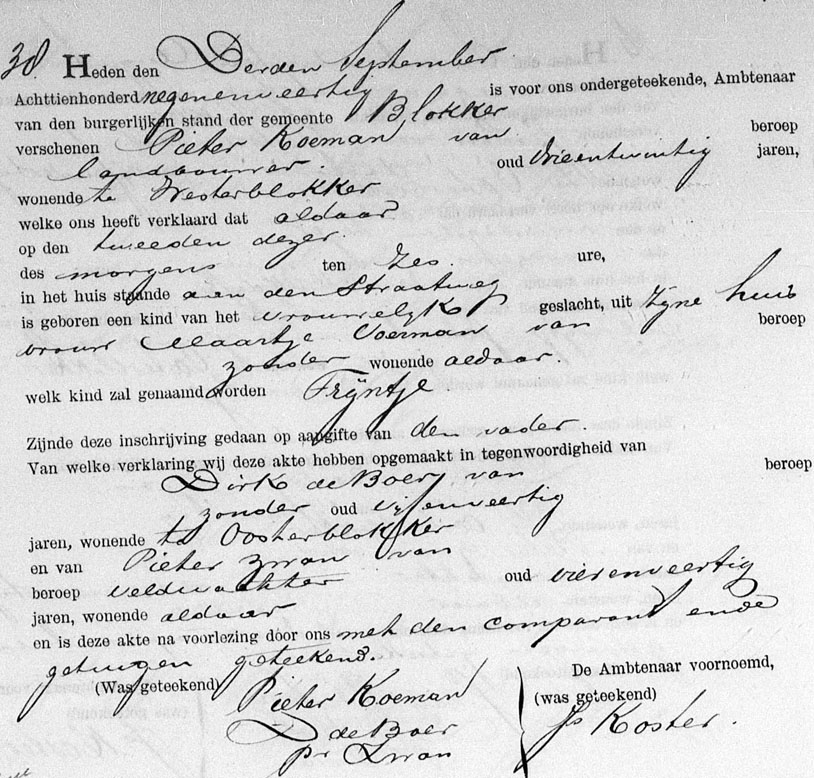 38. Heden den Derden September
Achttienhonderd negenenveertig is voor ons ondergeteekende, Ambtenaar
van den burgerlijken stand der gemeente Blokker
verschenen Pieter Koeman van beroep
landbouwer. oud drieentwintig jaren,
wonende te Westerblokker
welke ons heeft verklaard dat aldaar
op den tweeden dezer
des morgens ten zes ure,
in het huis staande aan den Straatweg
is geboren een kind van het vrouwelijk geslacht, uit zijne huis
vrouw Maartje Voerman van beroep
zonder wonende aldaar.
welk kind zal genaamd worden Trijntje.
Zijnde deze inschrijving gedaan op aangifte van den vader.
Van welke verklaring wij deze akte hebben opgemaakt in tegenwoordigheid van
Dirk de Boer van beroep
zonder oud vijfenveertig
jaren, wonende te Oosterblokker
en van Pieter Zwan van
beroep veldwachter oud vierenveertig
jaren, wonende aldaar
en is deze akte na voorlezing door ons met den comparant ende
getuigen geteekend.
(Was geteekend) De Ambtenaar voornoemd,
Pieter Koeman (was geteekend)
D de Boer Js Koster.
Pr Zwan